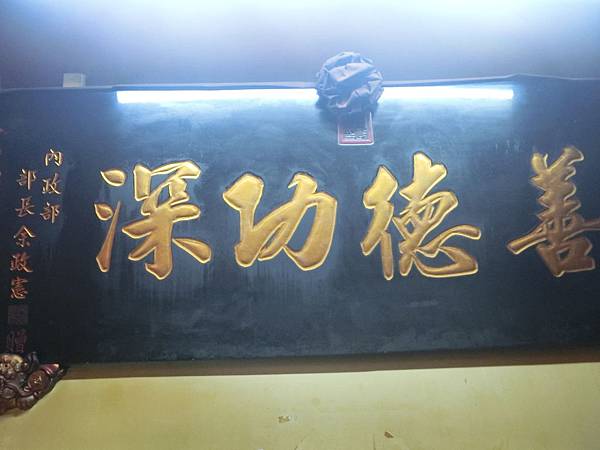 善德功深
內政部
部長余政憲
贈